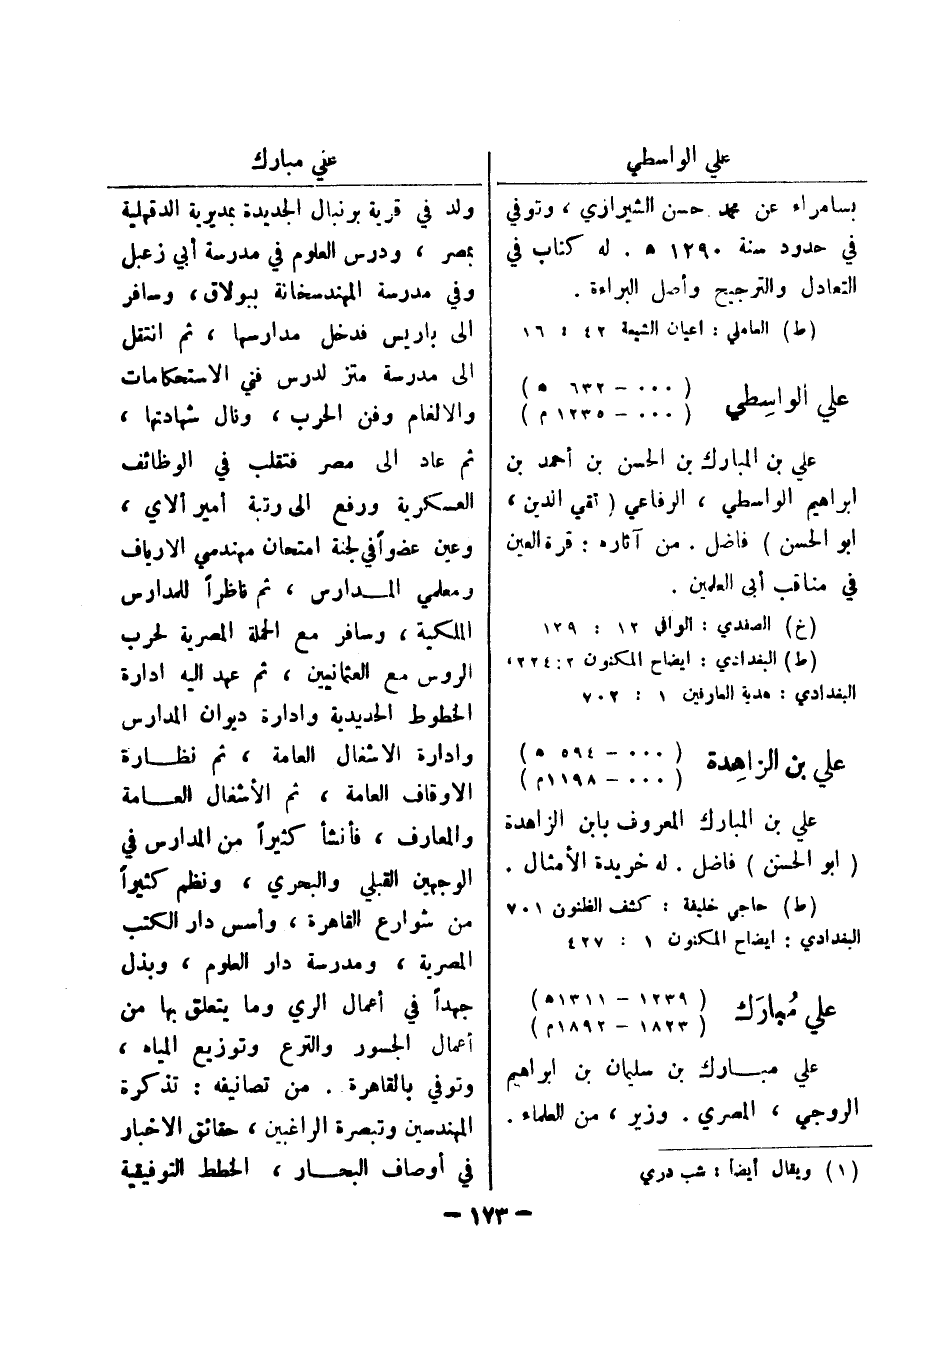 علي الواسطي
بسامراء عن محمد حسن الشيرازي ، وتوفي
في حدود سنة ١٢٩٠ ه . له كتاب في
التعادل والترجيح وأصل البراءة .
(ط) العاملي : اعيان الشيعة ٤٢ : ١٦
علي الواسِطي
( ٠٠٠ - ٦٣٢ ه )
( ٠٠٠ - ١٢٣٥ م )
علي بن المبارك بن الحسن بن أحمد بن
ابراهيم الواسطي ، الرفاعي ( تقي الدين ،
ابو الحسن ) فاضل . من آثاره : قرة العين
في مناقب أبي العلمين .
(خ) الصفدي : الوافي ١٢ : ١٢٩
(ط) البغدادي : ايضاح المكنون ٢ : ٢٢٤ ،
البغدادي : هدية العارفين ١ : ٧٠٢
علي بن الزاهِدة
( ٠٠٠ - ٥٩٤ ه )
( ٠٠٠ - ١١٩٨م )
علي بن المبارك المعروف بابن الزاهدة
( ابو الحسن ) فاضل . له خريدة الأمثال .
(ط) حاجي خليفة : كشف الظنون ٧٠١
البغدادي : ايضاح المكنون ١ : ٤٢٧
علي مُبارَك
( ١٢٣٩ - ١٣١١ه )
( ١٨٢٣ - ١٨٩٢م )
علي مبــارك بن سليمان بن ابراهيم
الروجي ، المصري . وزير ، من العلماء .
(١) ويقال أيضاً : شب دري
علي مبارك
ولد في قرية برنبال الجديدة بمديرية الدقهلية
بمصر ، ودرس العلوم في مدرسة أبي زعبل
وفي مدرسة المهندسخانة ببولاق ، وسافر
الى باريس فدخل مدارسها ، ثم انتقل
الى مدرسة متز لدرس فني الاستحكامات
والالغام وفن الحرب ، ونال شهادتها ،
ثم عاد الى مصر فتقلب في الوظائف
العسكرية ورفع الى رتبة أمير ألاي ،
وعين عضواً في لجنة امتحان مهندسي الارياف
ومعلمي المــدارس ، ثم ناظراً للمدارس
الملكية ، وسافر مع الحملة المصرية لحرب
الروس مع العثمانيين ، ثم عهد اليه ادارة
الخطوط الحديدية وادارة ديوان المدارس
وادارة الاشغال العامة ، ثم نظــارة
الاوقاف العامة ، ثم الأشغال العــامة
والمعارف ، فأنشأ كثيراً من المدارس في
الوجهين القبلي والبحري ، ونظم كثيراً
من شوارع القاهرة ، وأسس دار الكتب
المصرية ، ومدرسة دار العلوم ، وبذل
جهداً في أعمال الري وما يتعلق بها من
أعمال الجسور والترع وتوزيع المياه ،
وتوفي بالقاهرة . من تصانيفه : تذكرة
المهندسين وتبصرة الراغبين ، حقائق الاخبار
في أوصاف البحــار ، الخطط التوفيقية
- ١٧٣ -